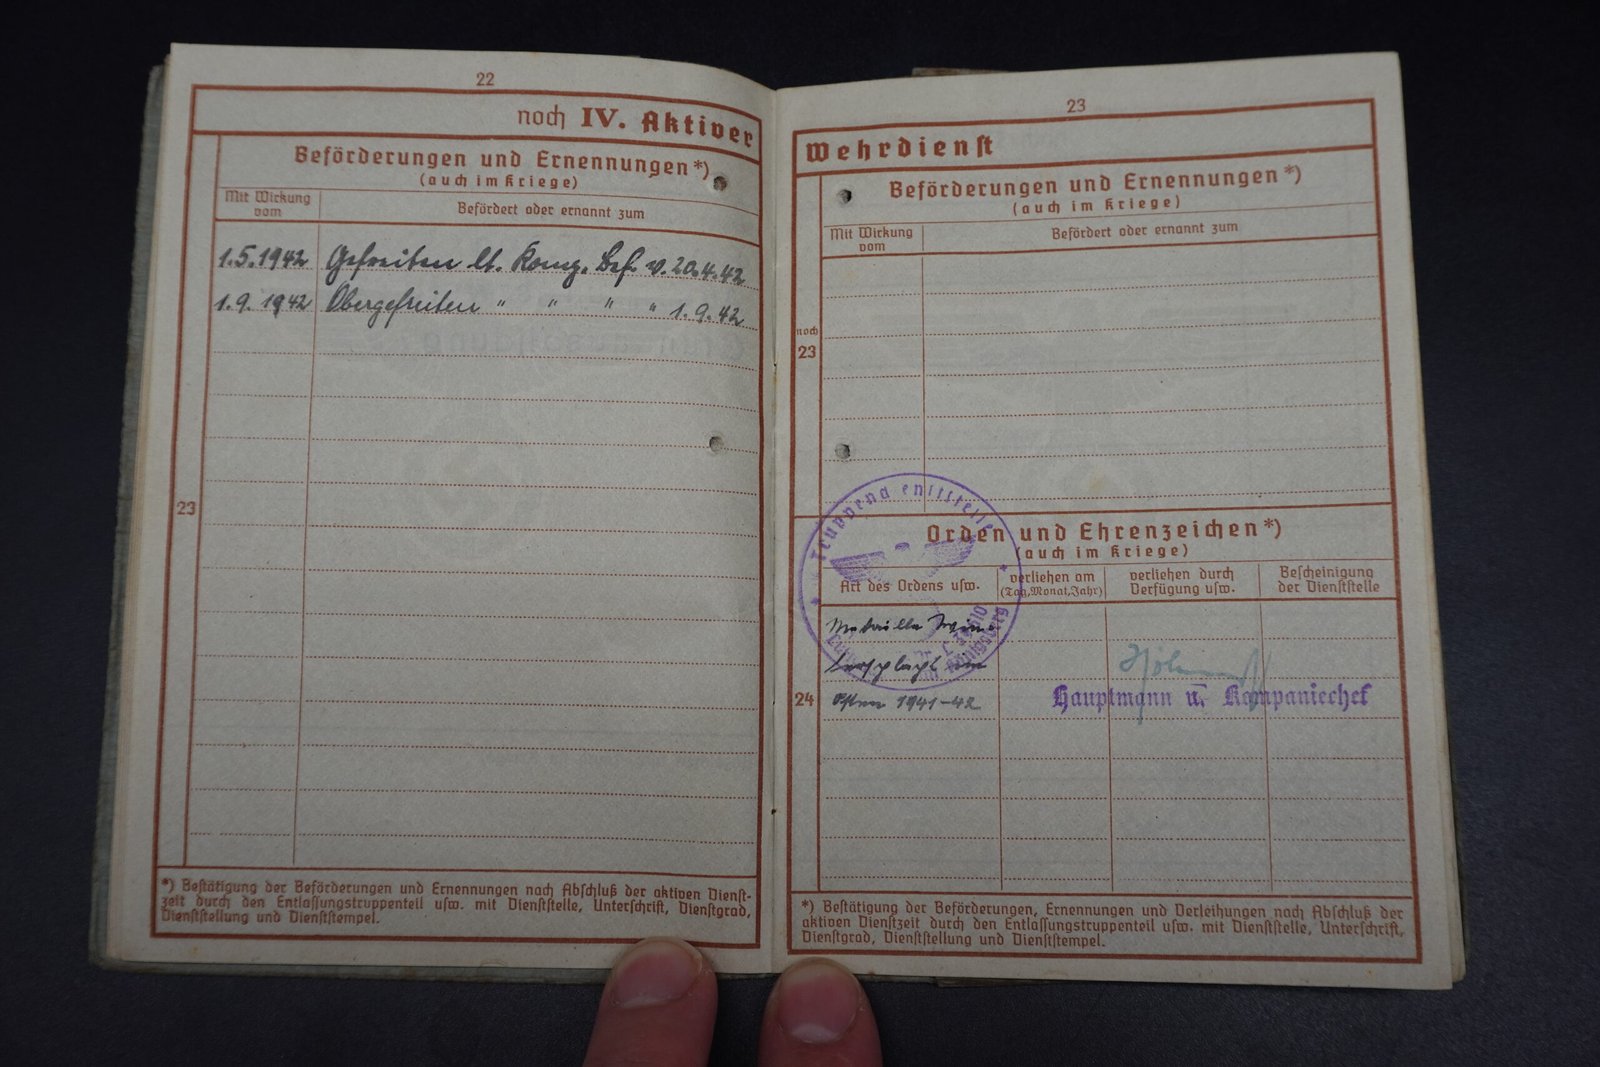 22
noch IV. Aktiver
Beförderungen und Ernennungen*)
(auch im Kriege)
Mit Wirkung
vom
Befördert oder ernannt zum
1.5.1942 Gefreiten lt. Komp. Bef. v. 20.4.42
1.9.1942 Obergefreiten " " " " 1.9.42
23
*) Bestätigung der Beförderungen und Ernennungen nach Abschluß der aktiven Dienst-
zeit durch den Entlassungstruppenteil usw. mit Dienststelle, Unterschrift, Dienstgrad,
Dienststellung und Dienststempel.
23
Wehrdienst
Beförderungen und Ernennungen*)
(auch im Kriege)
Mit Wirkung
vom
Befördert oder ernannt zum
noch
23
Orden und Ehrenzeichen*)
(auch im Kriege)
Art des Ordens usw.
verliehen am
(Tag, Monat, Jahr)
verliehen durch
Verfügung usw.
Bescheinigung
der Dienststelle
Medaille Win-
terschlacht im
24
Osten 1941-42
Hauptmann u. Kompaniechef
*) Bestätigung der Beförderungen, Ernennungen und Verleihungen nach Abschluß der
aktiven Dienstzeit durch den Entlassungstruppenteil usw. mit Dienststelle, Unterschrift,
Dienstgrad, Dienststellung und Dienststempel.